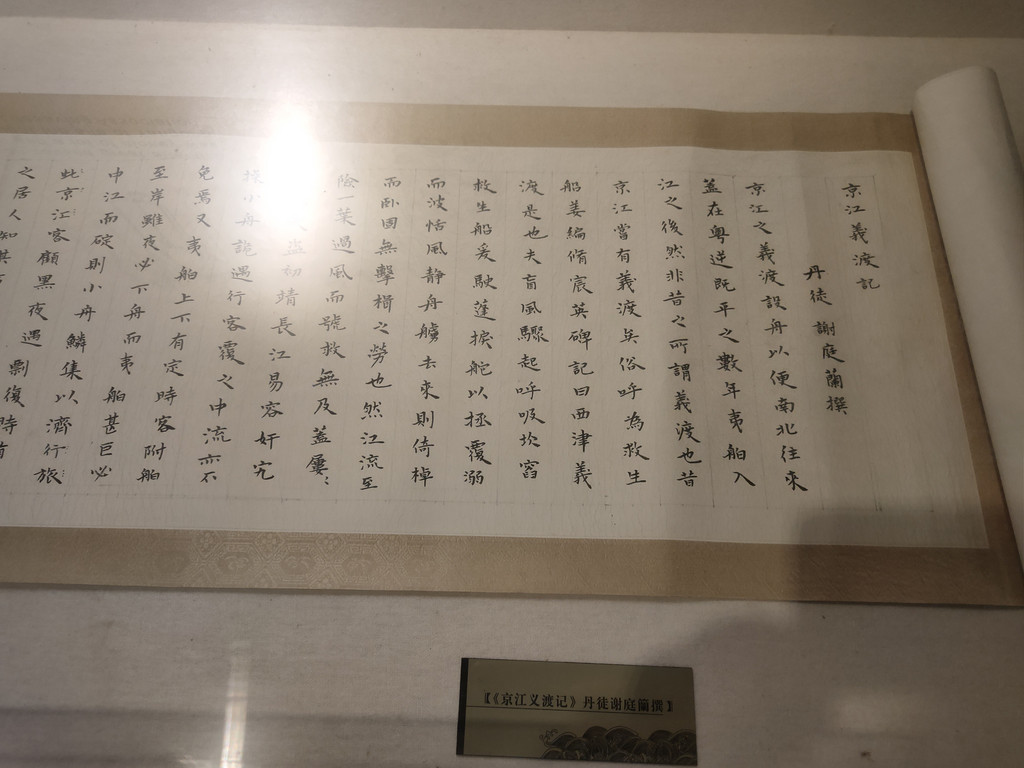 京江義渡記
丹徒 謝庭蘭撰
京江之義渡設舟以便南北往來
蓋在粤逆既平之數年夷舶入
江之後然非昔之所謂義渡也昔
京江嘗有義渡矣俗呼為救生
船姜編脩宸英碑記曰西津義
渡是也夫盲風驟起呼吸坎窞
救生船爰駛蓬捩舵以拯覆溺
而波恬風静舟艣去來則倚棹
而卧固無擊楫之勞也然江流至
險一葉遇風而號救無及蓋屢〻
盗初靖長江易容奸宄
操小舟詭遇行客覆之中流亦不
免焉又夷舶上下有定時客附舶
至岸雖夜必下舟而夷舶甚巨必
中江而碇則小舟鱗集以濟行旅
此京江客顧黑夜遇剽復時有
之居人知其
《京江义渡记》丹徒谢庭蘭撰